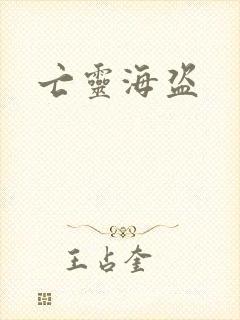 亡靈海盗
王占奎